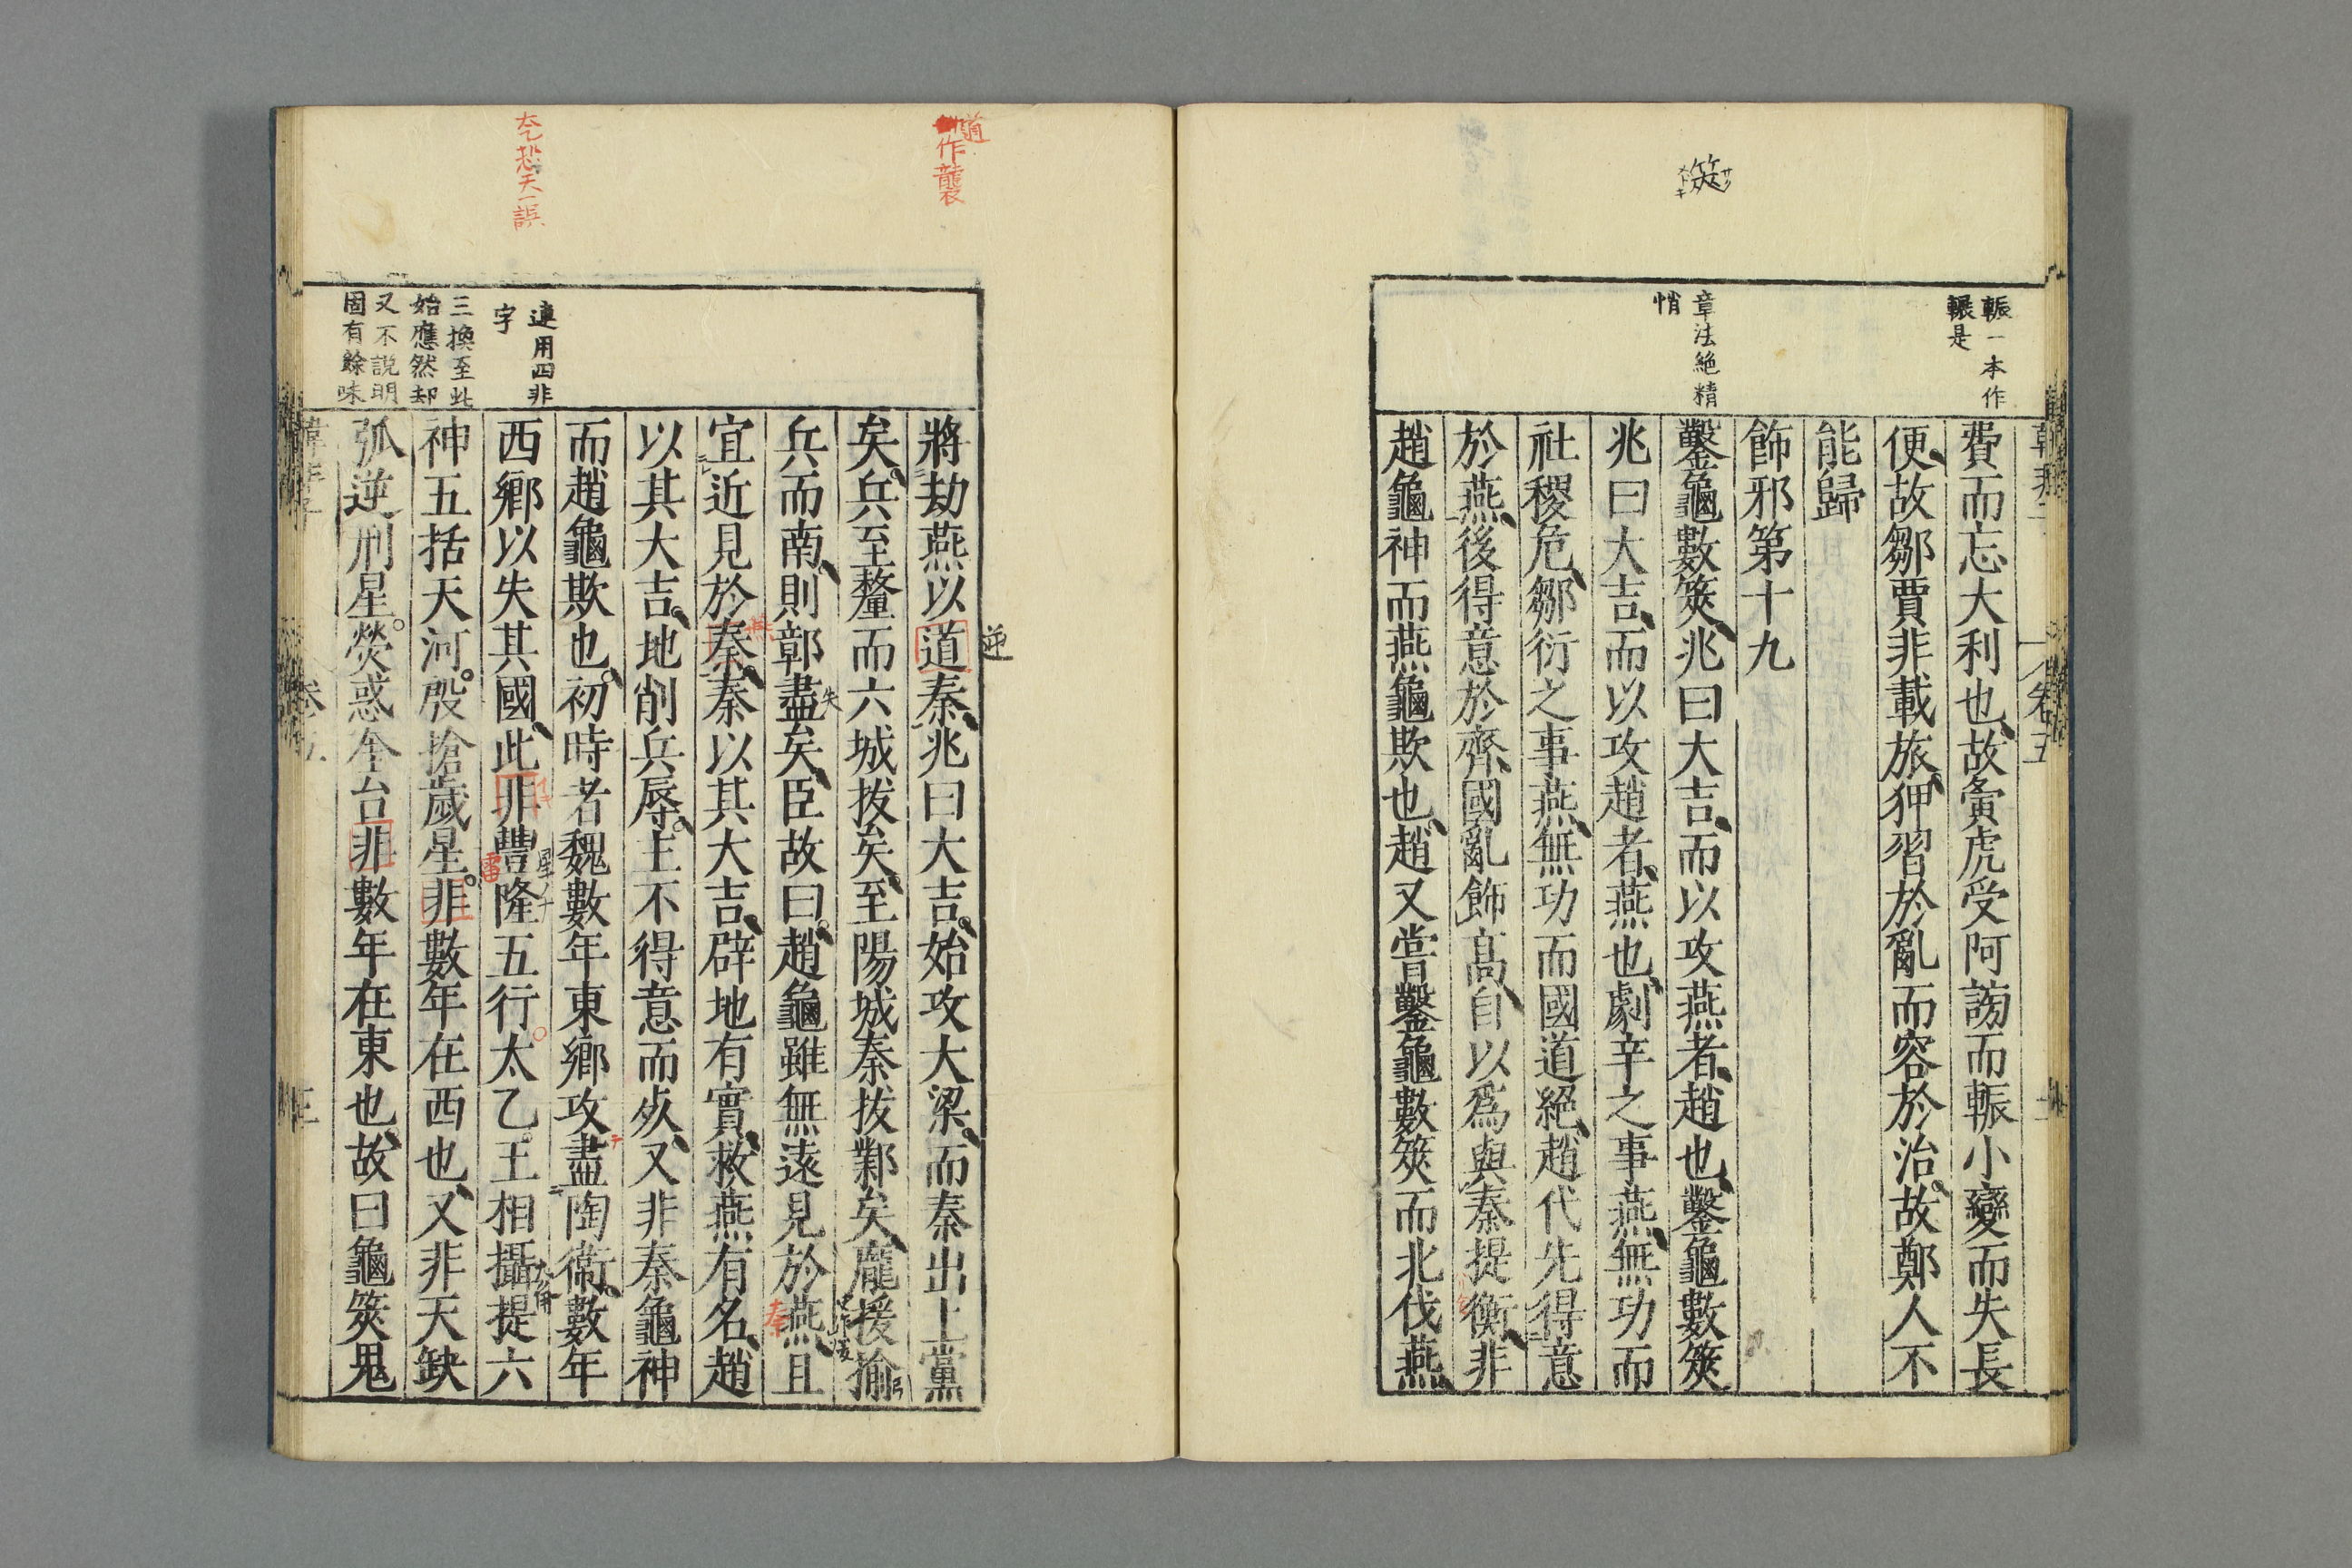 筴
輾一本作
輾是
章法絶精
悄
費而忘大利也故夤虎受阿謗而輾小變而失長
便故鄒賈非載旅狎習於亂而容於治故鄭人不
能歸
飾邪第十九
鑿龜數筴兆曰大吉而以攻燕者趙也鑿龜數筴
兆曰大吉而以攻趙者燕也劇辛之事燕無功而
社稷危鄒衍之事燕無功而國道絕趙代先得意
於燕後得意於齊國亂飾高自以爲與秦提衡非
趙龜神而燕龜欺也趙又嘗鑿龜數筴而北伐燕
道
作襲
連用四非
字
三換至此
始應然却
又不説明
固有餘味
將劫燕以道秦兆曰大吉始攻大梁而秦出上黨
逆
矣兵至釐而六城拔矣至陽城秦拔鄴矣龐援揄
兵而南則鄣盡矣臣故曰趙龜雖無遠見於燕且
失
秦
宜近見於秦秦以其大吉辟地有實救燕有名趙
以其大吉地削兵辱主不得意而死又非秦龜神
而趙龜欺也初時者魏數年東鄉攻盡陶衛數年
西鄉以失其國此非豐隆五行太乙王相攝提六
雷
神五括天河殷搶歲星非數年在西也又非天缺
弧逆刑星熒惑奎台非數年在東也故曰龜筴鬼